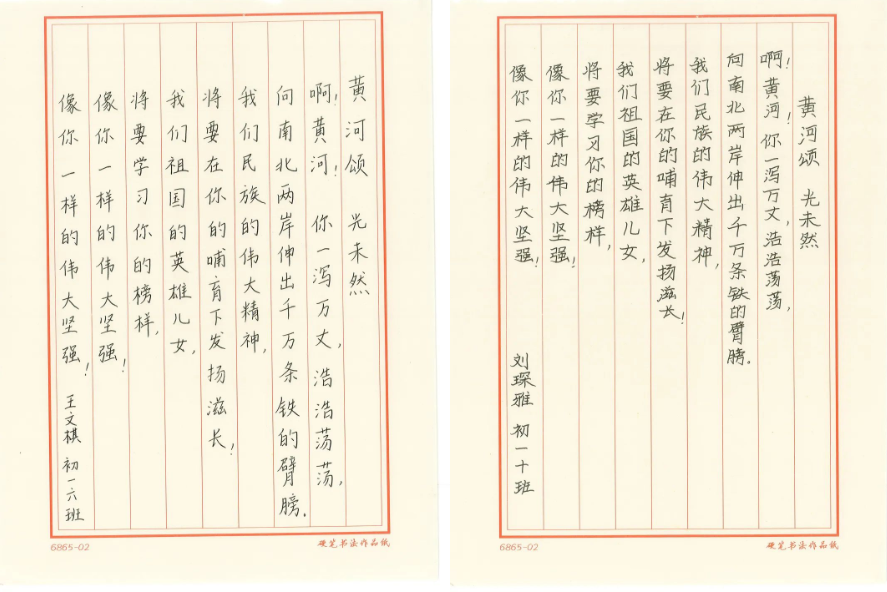 黄河颂 光未然
啊！黄河！你一泻万丈，浩浩荡荡，
向南北两岸伸出千万条铁的臂膀。
我们民族的伟大精神，
将要在你的哺育下发扬滋长！
我们祖国的英雄儿女，
将要学习你的榜样，
像你一样的伟大坚强！
像你一样的伟大坚强！
王文祺 初一六班
6865-02
硬笔书法作品纸
黄河颂 光未然
啊！黄河！你一泻万丈，浩浩荡荡，
向南北两岸伸出千万条铁的臂膀。
我们民族的伟大精神，
将要在你的哺育下发扬滋长！
我们祖国的英雄儿女，
将要学习你的榜样，
像你一样的伟大坚强！
像你一样的伟大坚强！
刘琛雅 初一十班
6865-02
硬笔书法作品纸